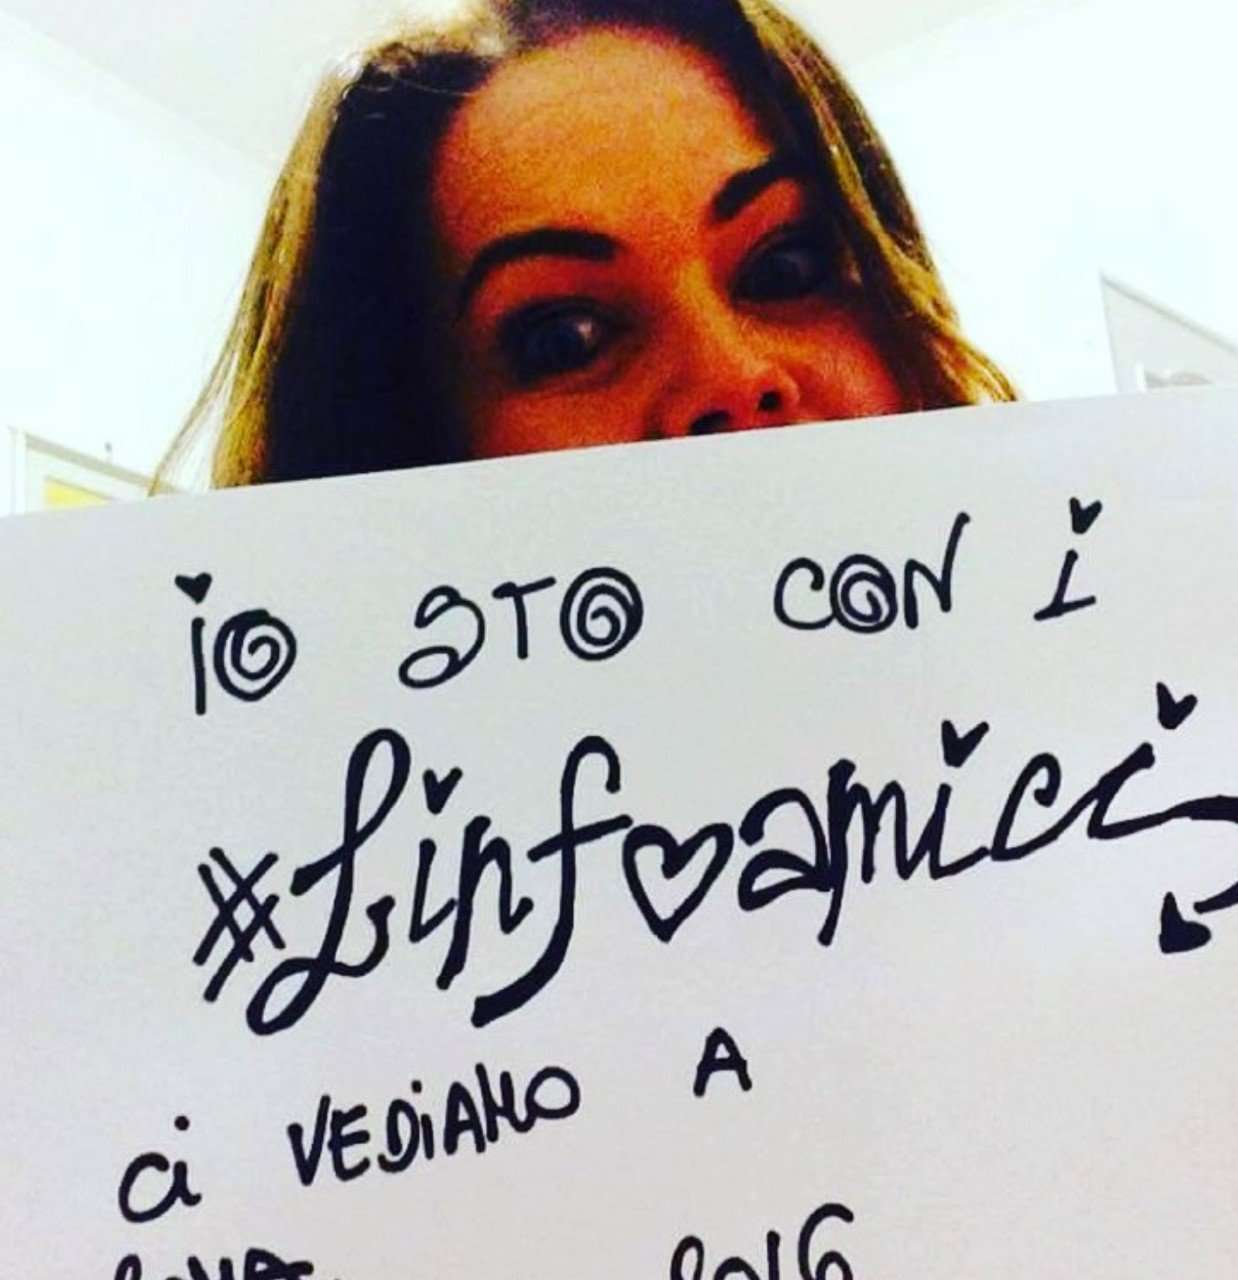 io STO CON i
#Linfoamici
ci VEDiAMO A
2016